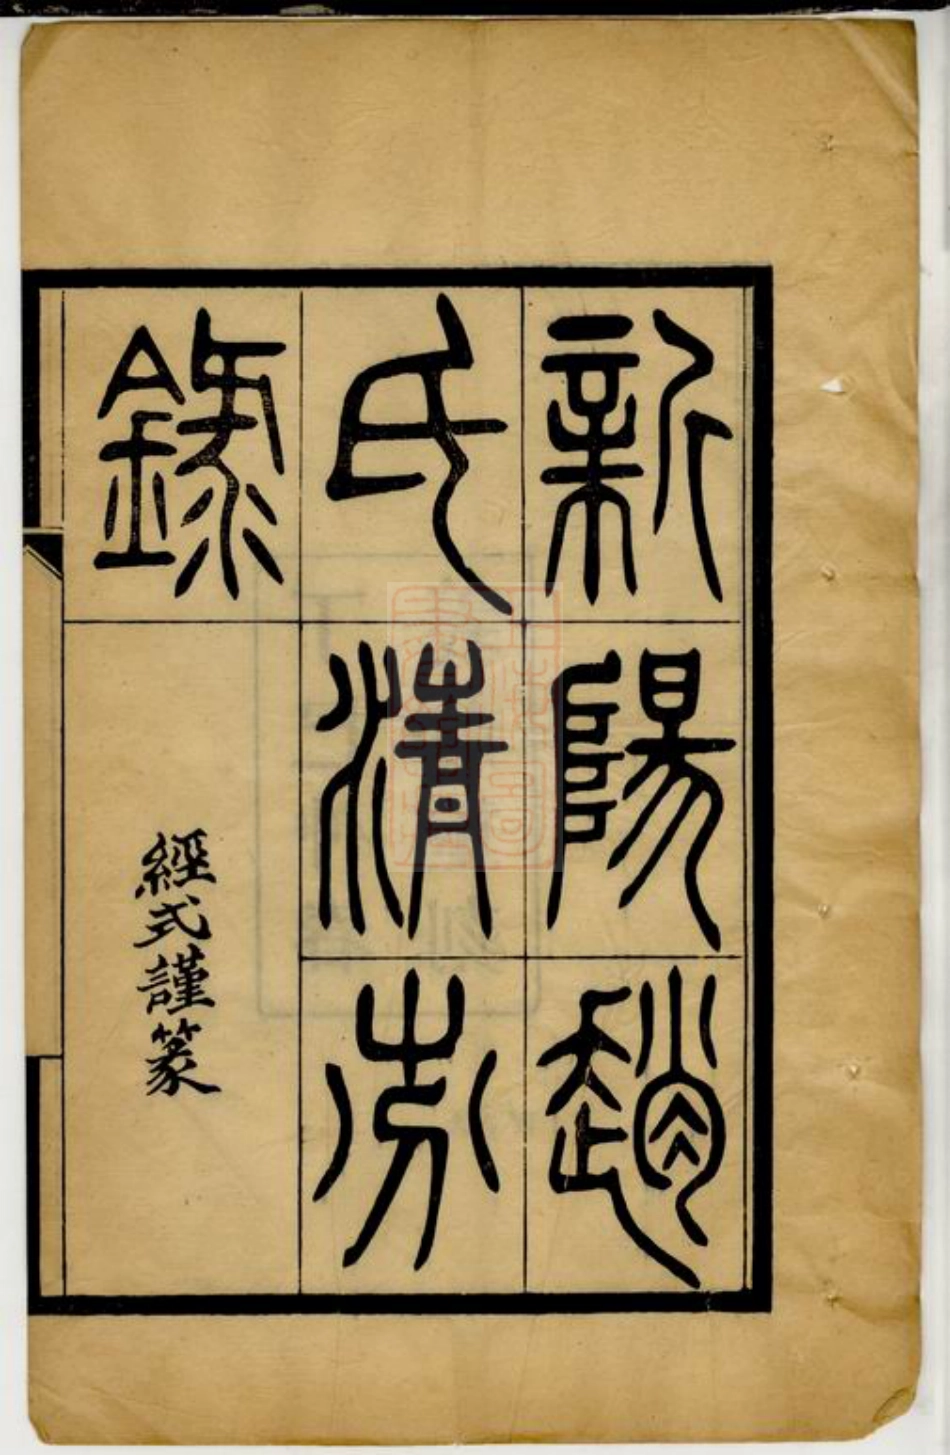 新陽趙
氏清芬
錄
經式謹篆